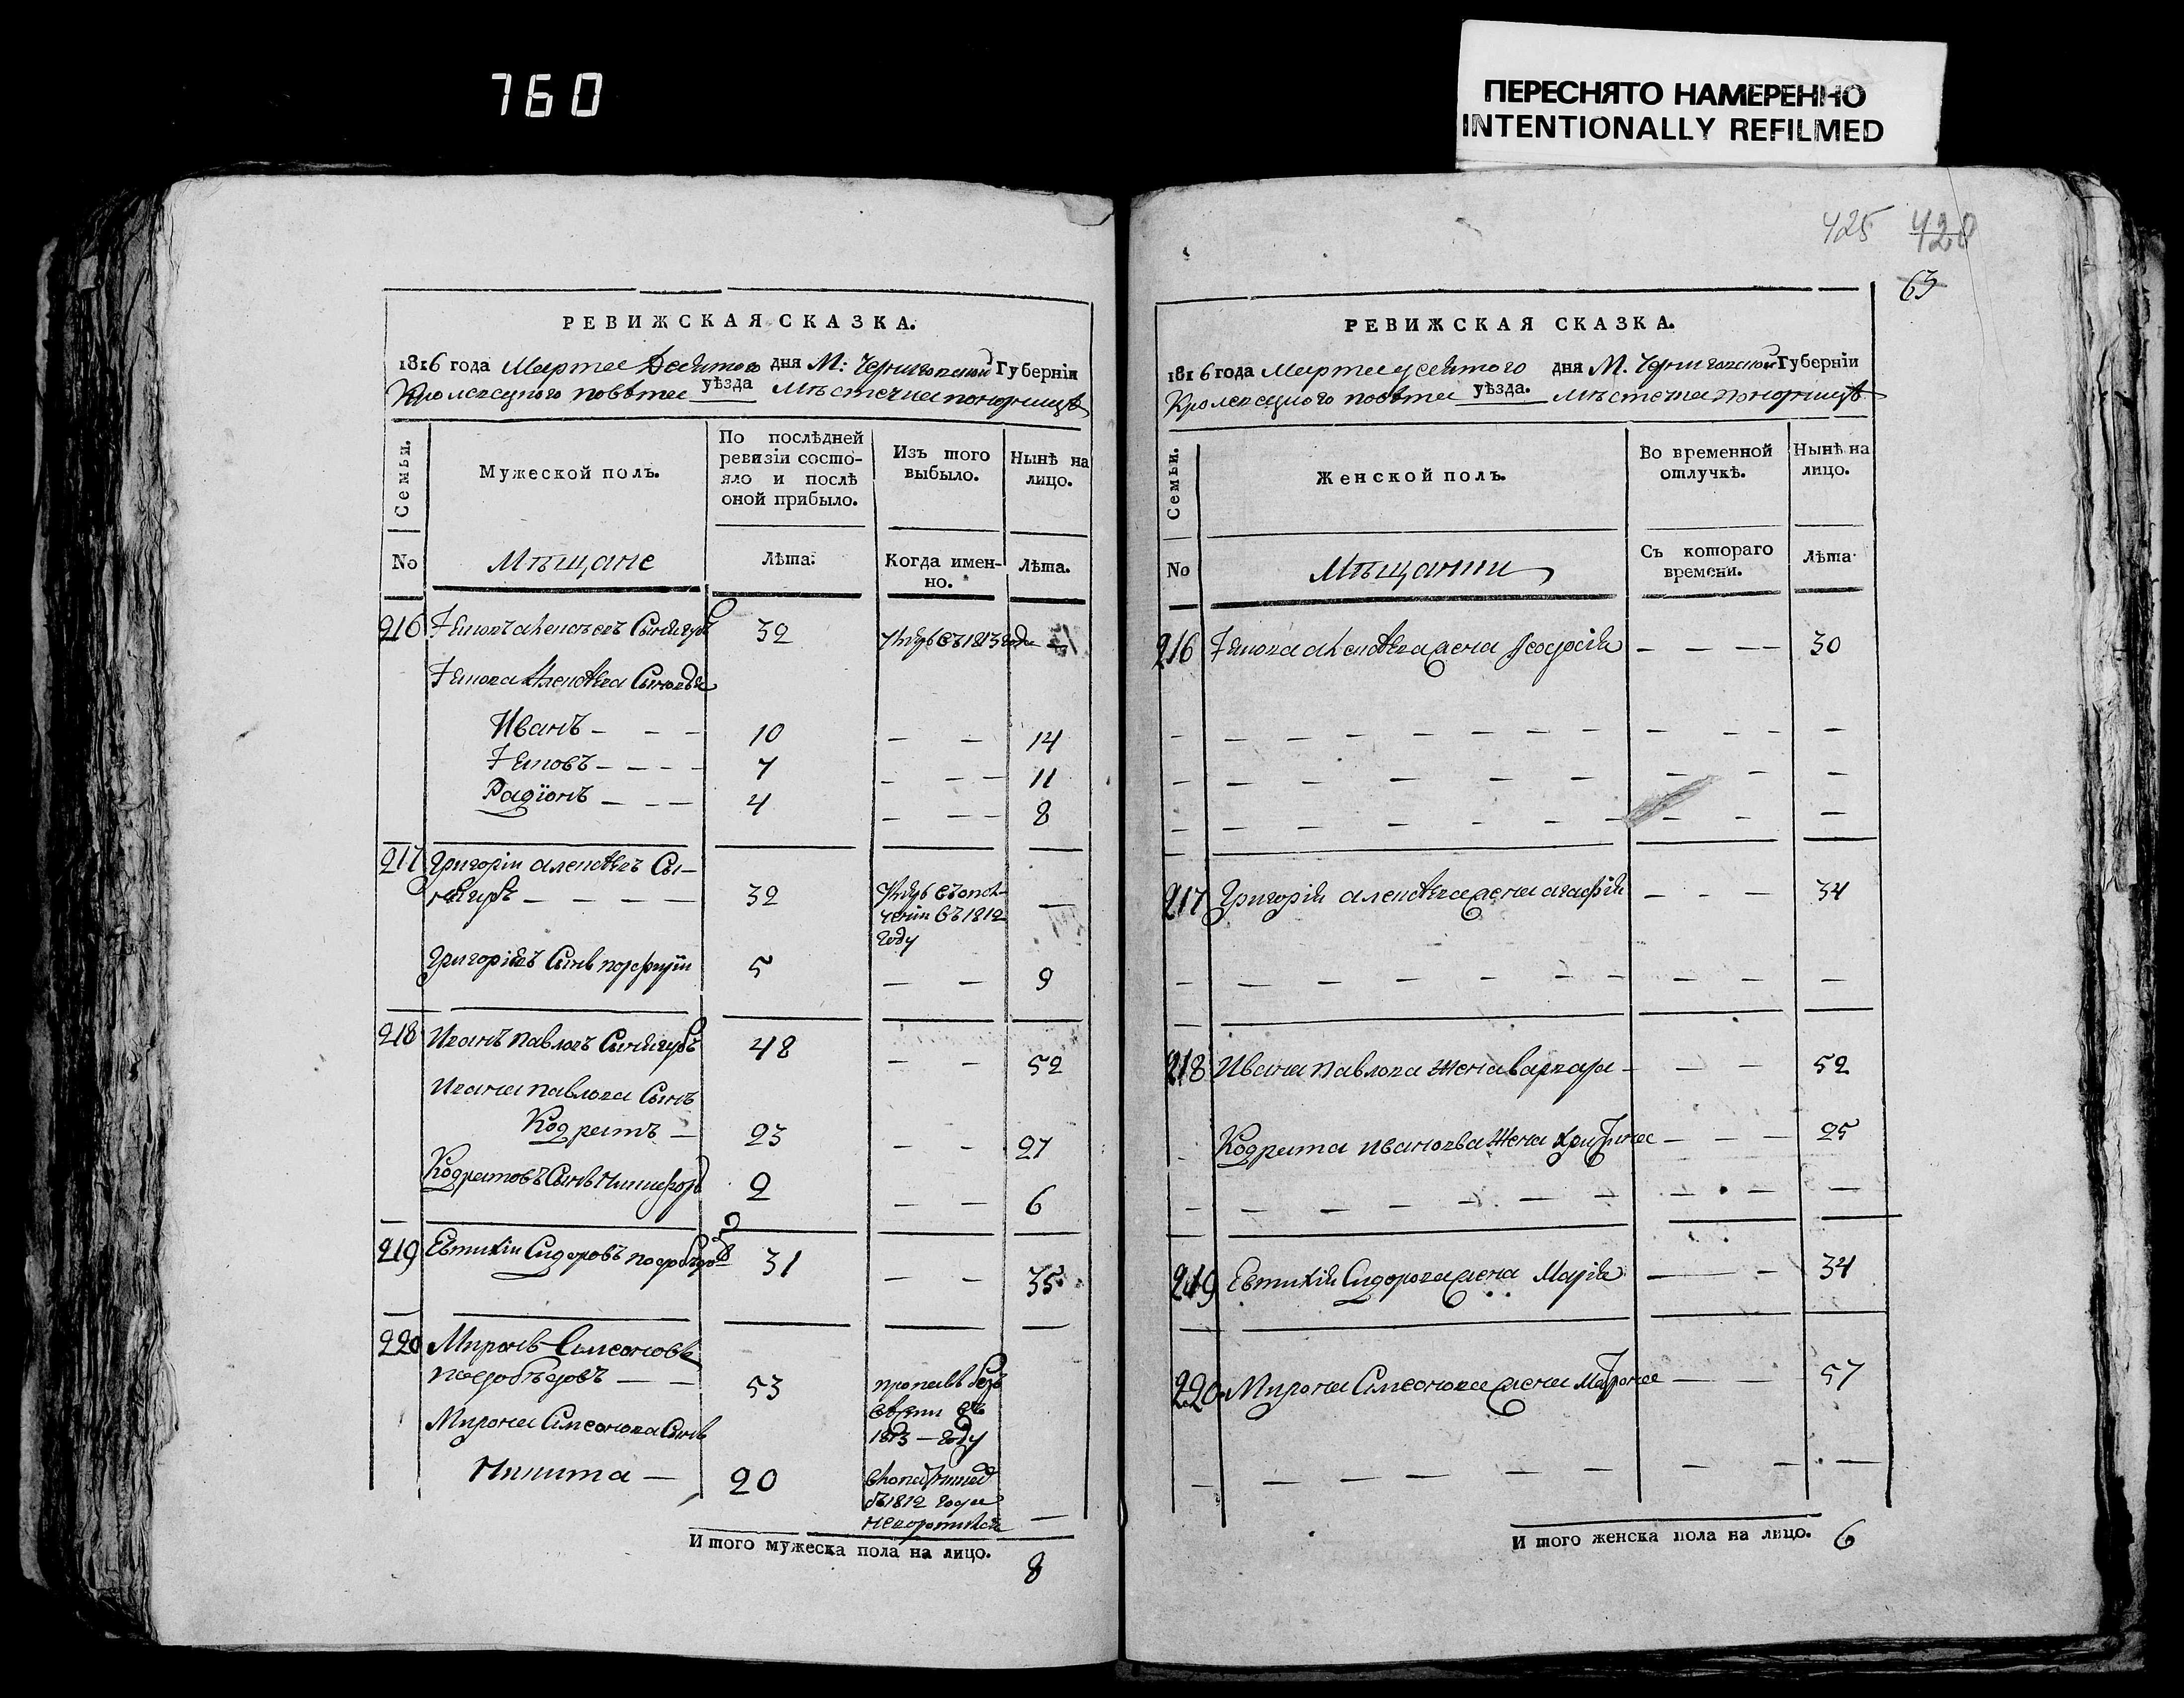 760
ПЕРЕСНЯТО НАМЕРЕННО
INTENTIONALLY REFILMED
425 428
63
РЕВИЖСКАЯ СКАЗКА.
1816 года Марта Десятого дня М: Черниговской Губерніи
Кролевецкого повѣта уѣзда Мѣстечка Понорницѣ
Семьи.
Мужеской полъ.
По послѣдней
ревизіи состо-
яло и послѣ
оной прибыло.
Изъ того
выбыло.
Нынѣ на
лицо.
No
Мѣщане
Лѣта.
Когда имен-
но.
Лѣта.
216
32
1813
Иванъ - - - 10 - - 14
7 - - - 11
Радіонъ - - - 4 - - - 8
217 Григорій Сы-
32
въ 1812
году
Сынъ 5 - - 9
218 Иванъ Павловъ 48 - - 52
Ивана Павлова Сынъ
Кодратъ - 23 - - 27
Кодратовъ Сынъ Никифоръ 2 - - 6
219 Евтихій Сидоровъ 31 - - 35
220 Миронъ Симеоновъ
53 пропалъ безъ
вѣсти въ
1813 - году
Мирона Симеонова Сынъ
Никита - 20
1812 года
И того мужеска пола на лицо. 8
РЕВИЖСКАЯ СКАЗКА.
1816 года Марта десятого дня М. Черниговской Губерніи
Кролевецкого повѣта уѣзда. Мѣстечка Понорницѣ
Семьи.
Женской полъ.
Во временной
отлучкѣ.
Нынѣ на
лицо.
No
Мѣщанки
Съ котораго
времени.
Лѣта
216 жена - - - - 30
217 Григорія жена Агафія - - - 34
218 Ивана Павлова жена Варвара - - - 52
Кодрата Иванова жена - - - 25
219 Евтихія Сидорова жена Марія - - 34
220 Мирона Симеонова жена - - 57
И того женска пола на лицо. 6